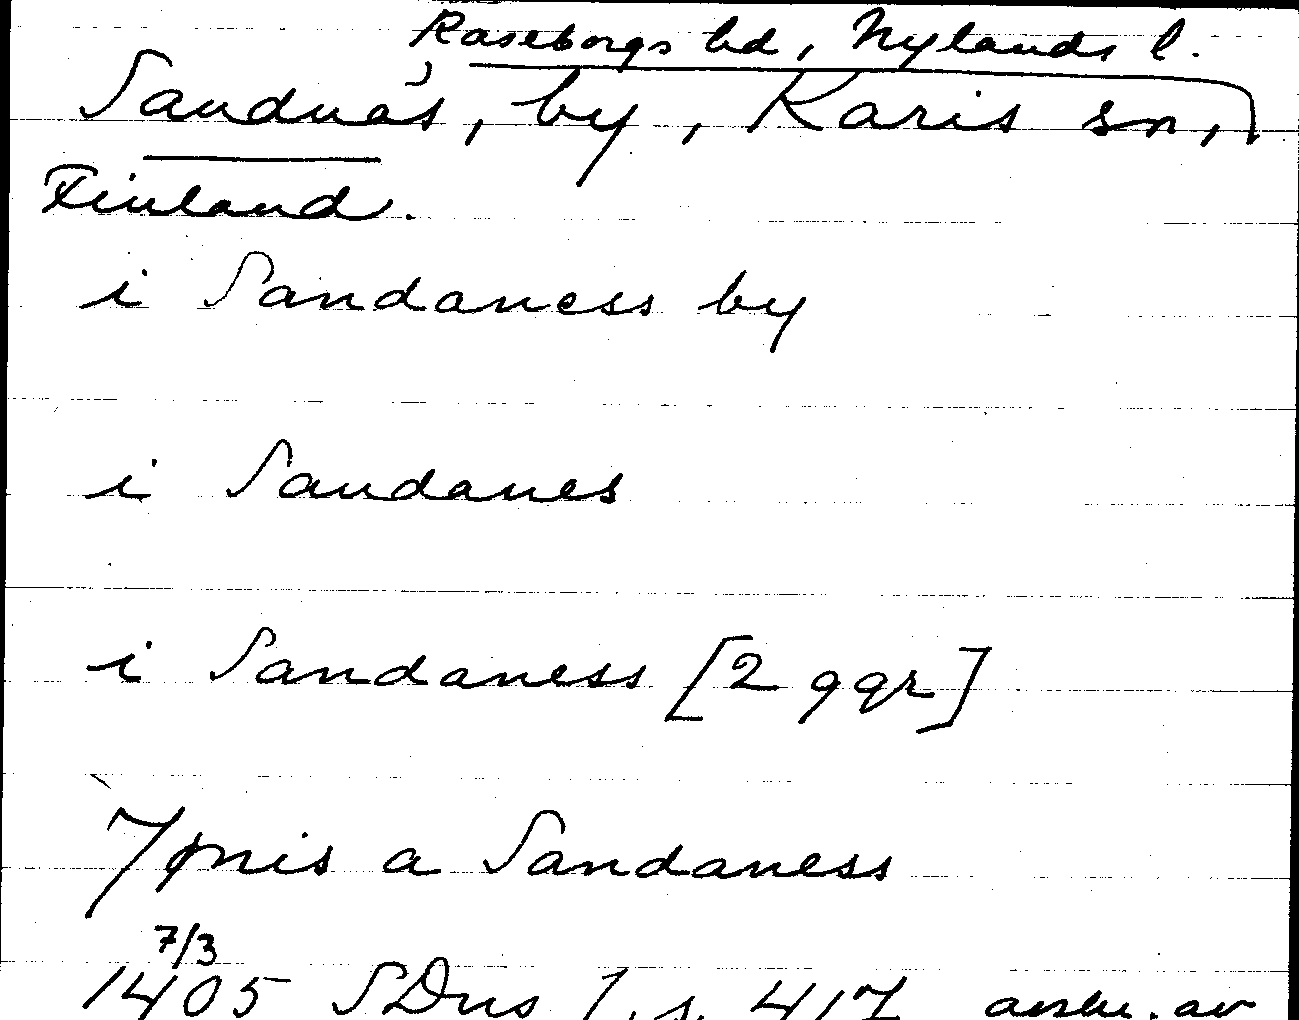 Raseborgs hd, Nylands l.
Sandnäs, by, Karis sn,
Finland.
i Sandaness by
i Sandanes
i Sandaness [2 ggr]
Jønis a Sandaness
7/3
1405 SDns 1. s. 417 avskr. av